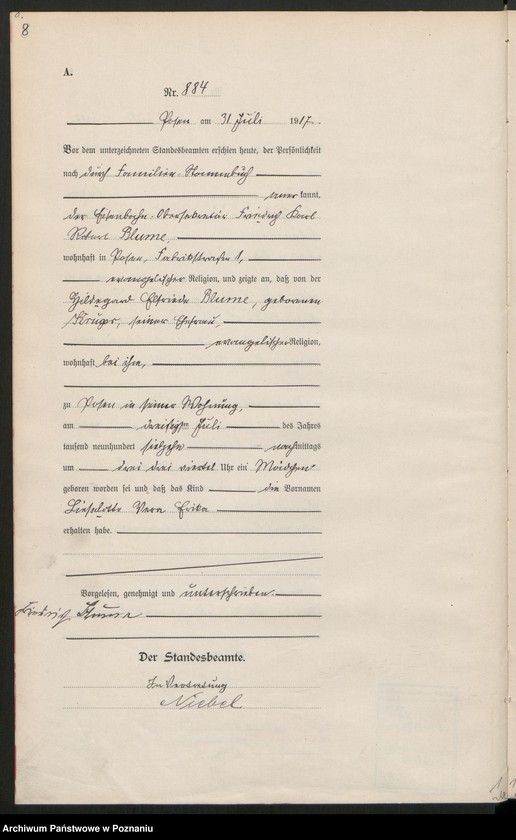 8.
8
A.
Nr. 884
Posen am 31 Juli 1917.
Vor dem unterzeichneten Standesbeamten erschien heute, der Persönlichkeit
nach durch Familien-Stammbuch
aner kannt,
der Eisenbahn-Obersekretär Friedrich Karl
Robert Blume,
wohnhaft in Posen, Fabrikstraße 1,
evangelischer Religion, und zeigte an, daß von der
Hildegard Elfriede Blume, geborenen
Krüger, seiner Ehefrau,
evangelischer Religion,
wohnhaft bei ihm,
zu Posen in seiner Wohnung,
am dreißigsten Juli des Jahres
tausend neunhundert siebzehn nachmittags
um drei drei viertel Uhr ein Mädchen
geboren worden sei und daß das Kind die Vornamen
Lieselotte Vera Erika
erhalten habe.
Vorgelesen, genehmigt und unterschrieben.
Friedrich Blume
Der Standesbeamte.
In Vertretung
Niebel
Archiwum Państwowe w Poznaniu